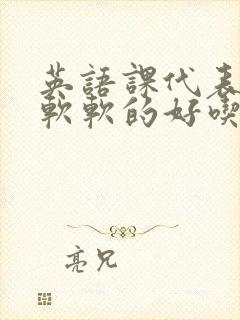 英語課代表
軟軟的好喫
亮兄